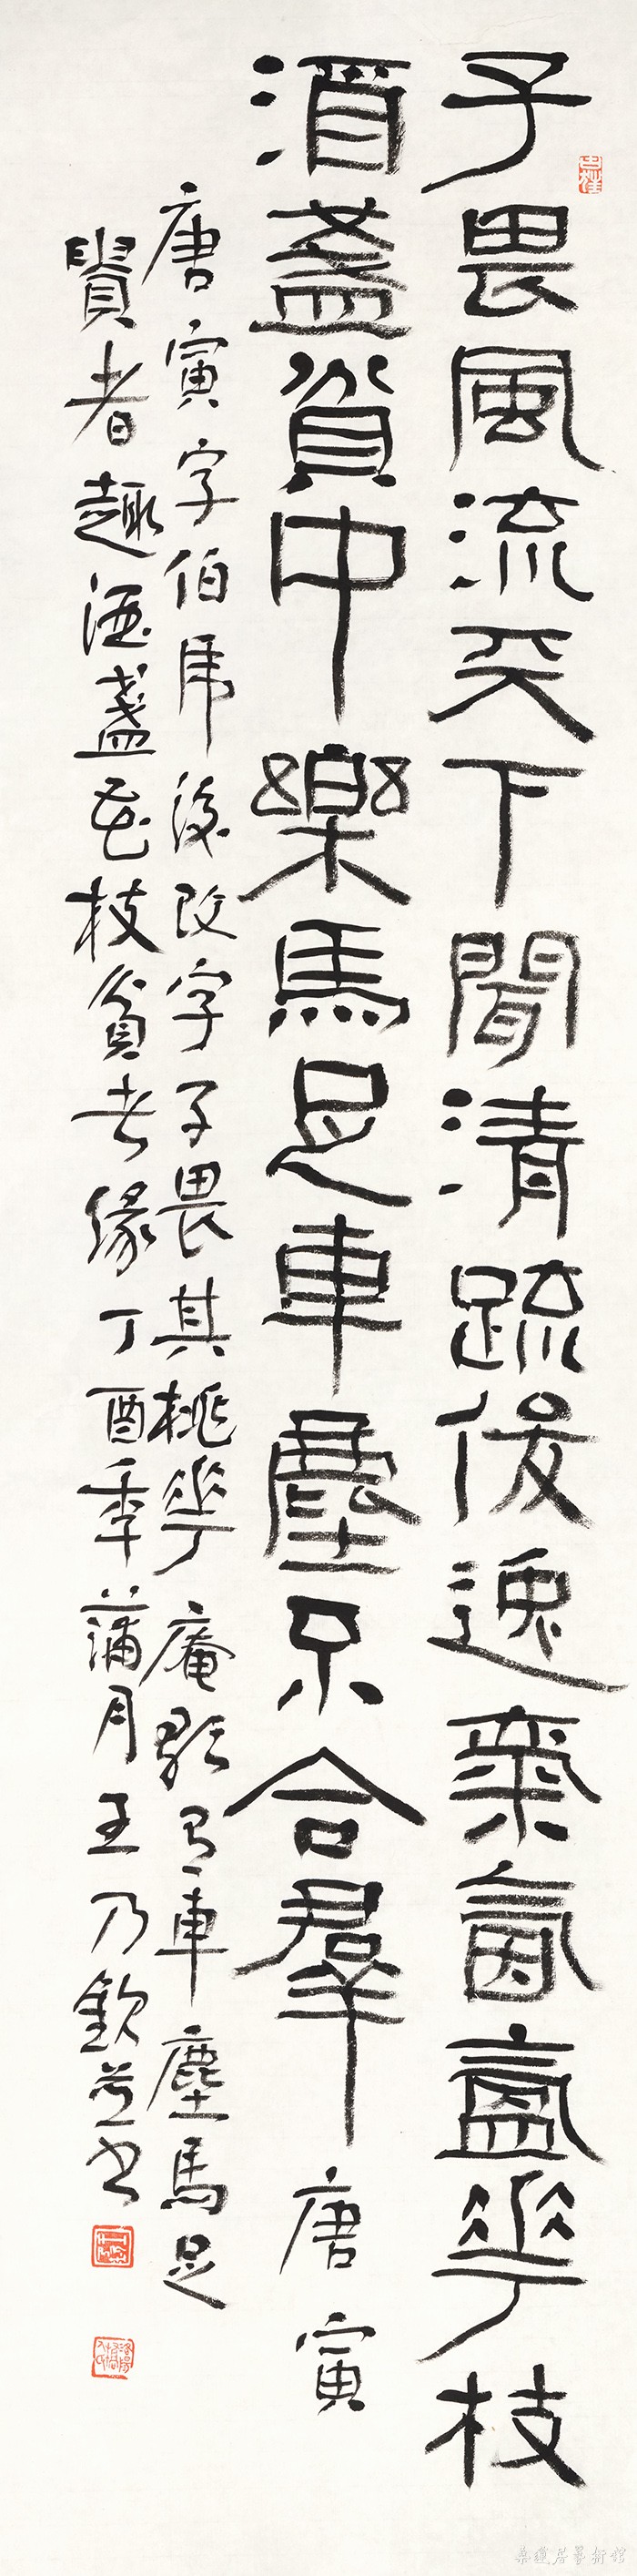 子畏風流天下聞清疏俊逸氣氤氳華枝
酒盞貧中樂馬足車塵不合羣唐寅
唐寅字伯虎後改字子畏其桃華庵歌有車塵馬足
貴者趣酒盞花枝貧者緣丁酉年蒲月王乃欽並書
桑蓮居藝術館